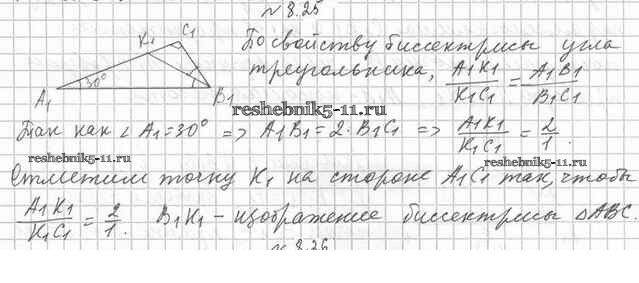 № 8.25
K₁ C₁
A₁ 30° B₁
По свойству биссектрисы угла
треугольника, A₁K₁/K₁C₁ = A₁B₁/B₁C₁
reshebnik5-11.ru
Так как ∠A₁=30° => A₁B₁=2·B₁C₁ => A₁K₁/K₁C₁ = 2/1.
reshebnik5-11.ru
Отметим точку K₁ на стороне A₁C₁ так, чтобы
A₁K₁/K₁C₁ = 2/1. B₁K₁ – изображение биссектрисы △ABC.
№ 8.26